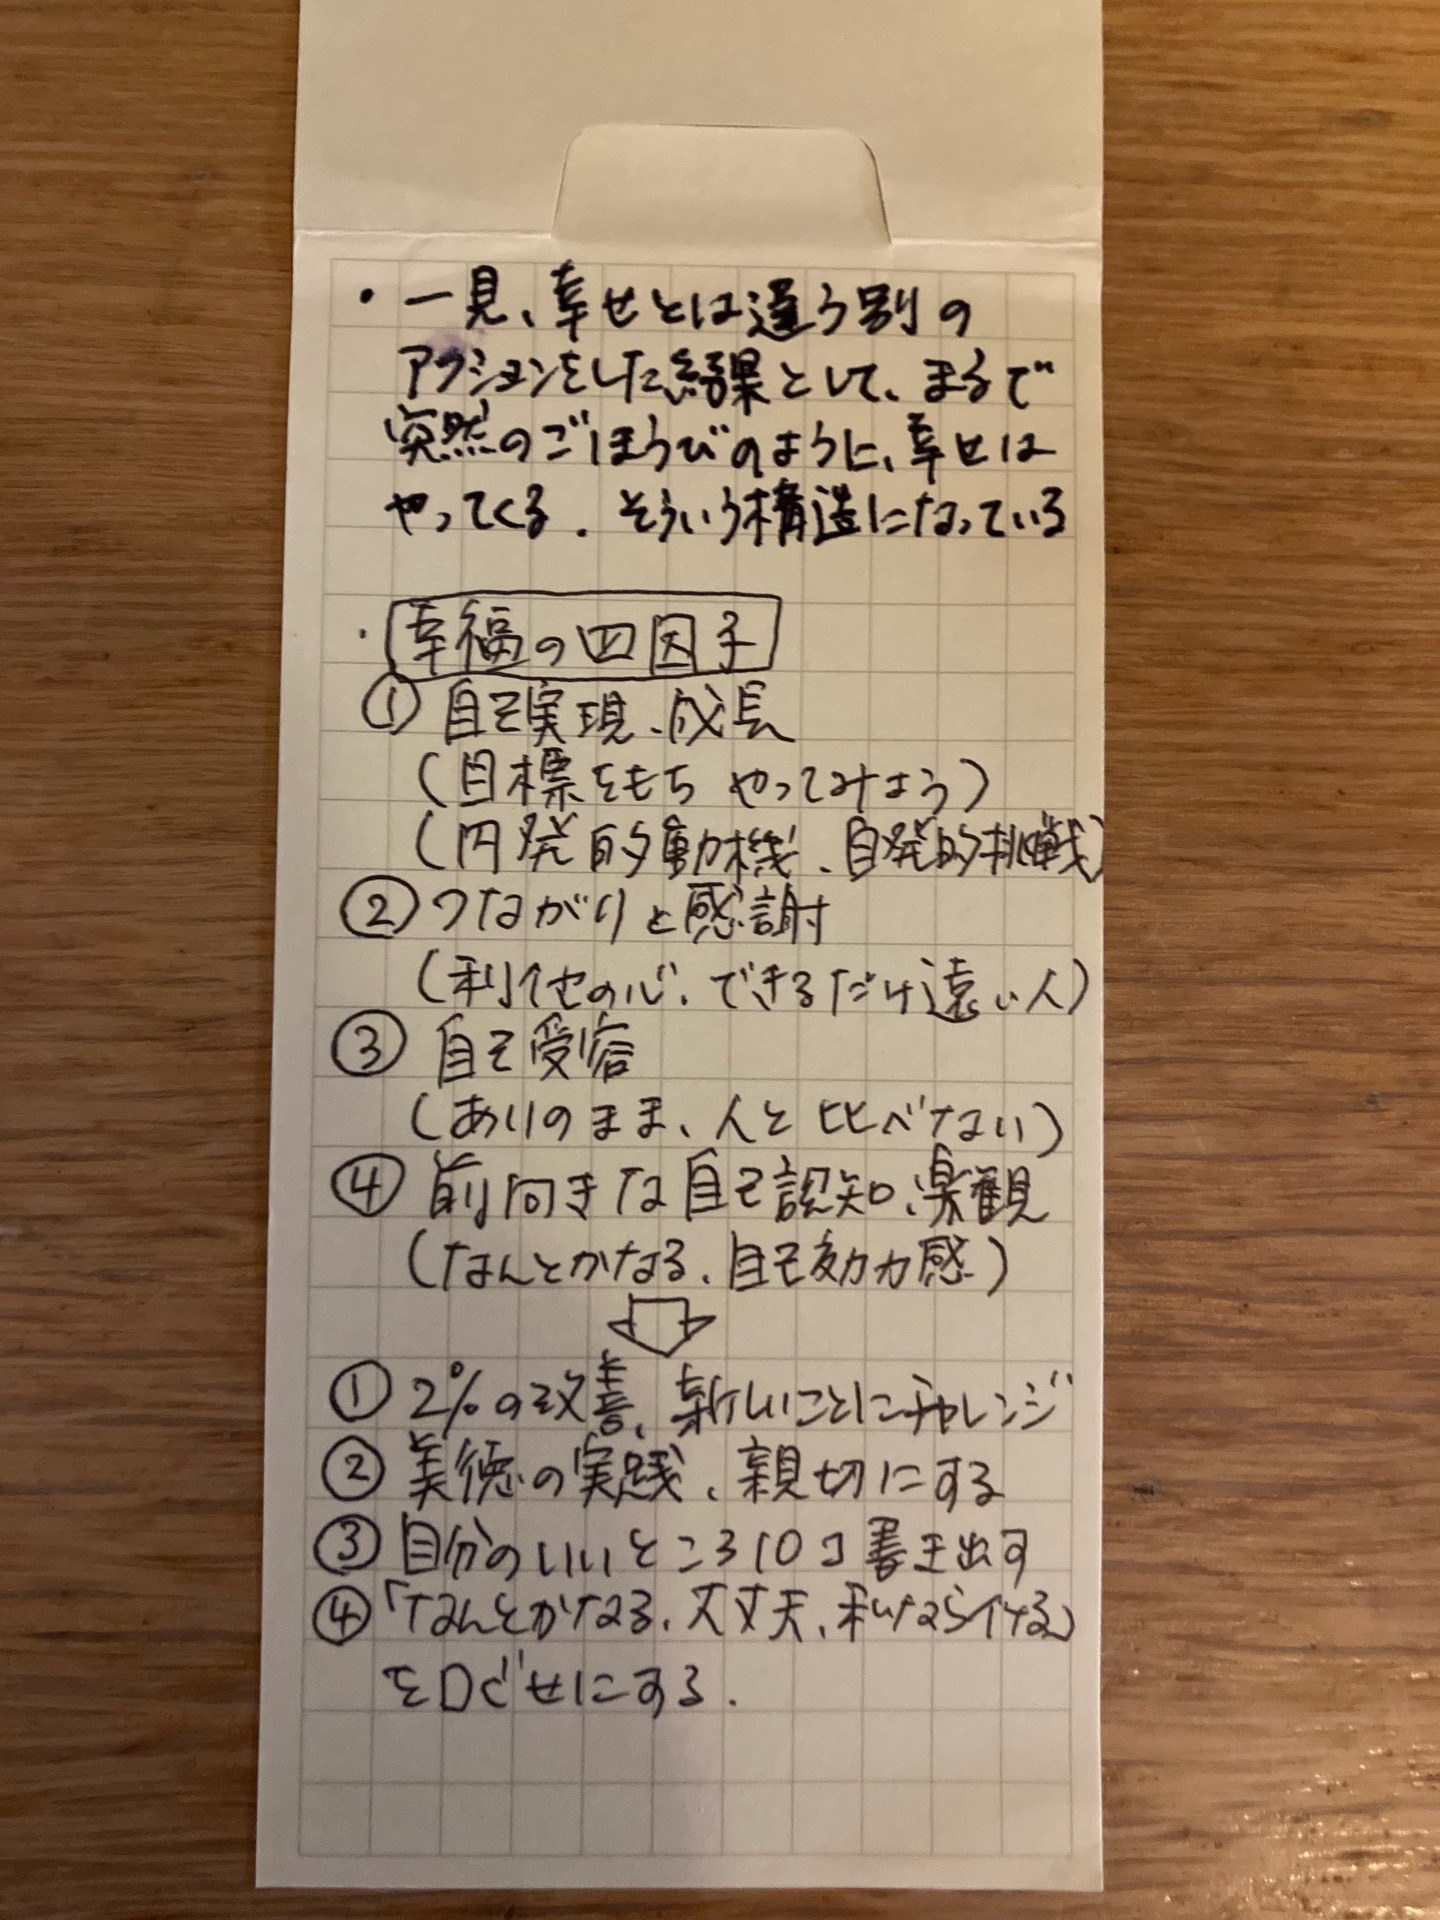 ・一見、幸せとは違う別の
アクションをした結果として、まるで
突然のごほうびのように、幸せは
やってくる。そういう構造になっている
・幸福の四因子
① 自己実現、成長
(目標をもち やってみよう)
(内発的動機、自発的挑戦)
② つながりと感謝
(利他の心、できるだけ遠い人)
③ 自己受容
(ありのまま、人と比べない)
④ 前向きな自己認知、楽観
(なんとかなる、自己効力感)
⇩
① 2%の改善、新しいことにチャレンジ
② 美徳の実践、親切にする
③ 自分のいいところ10コ書き出す
④「なんとかなる、大丈夫、私なら行ける」
を口ぐせにする.